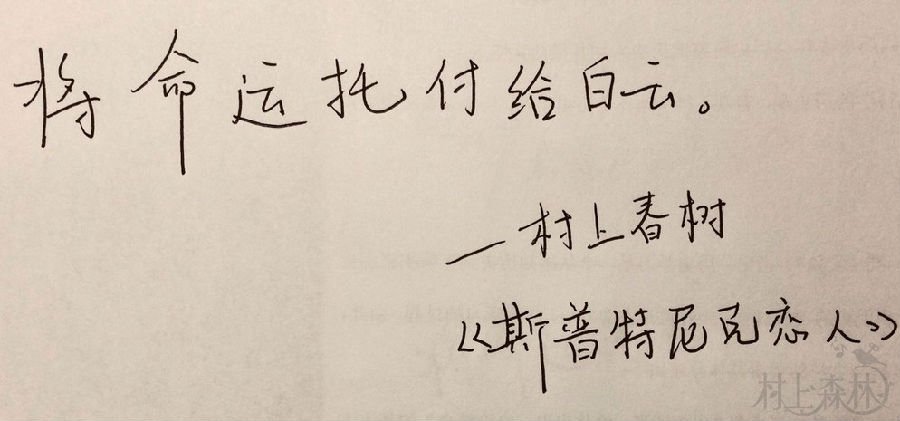 将命运托付给白云。
—村上春树
《斯普特尼克恋人》
村上森林